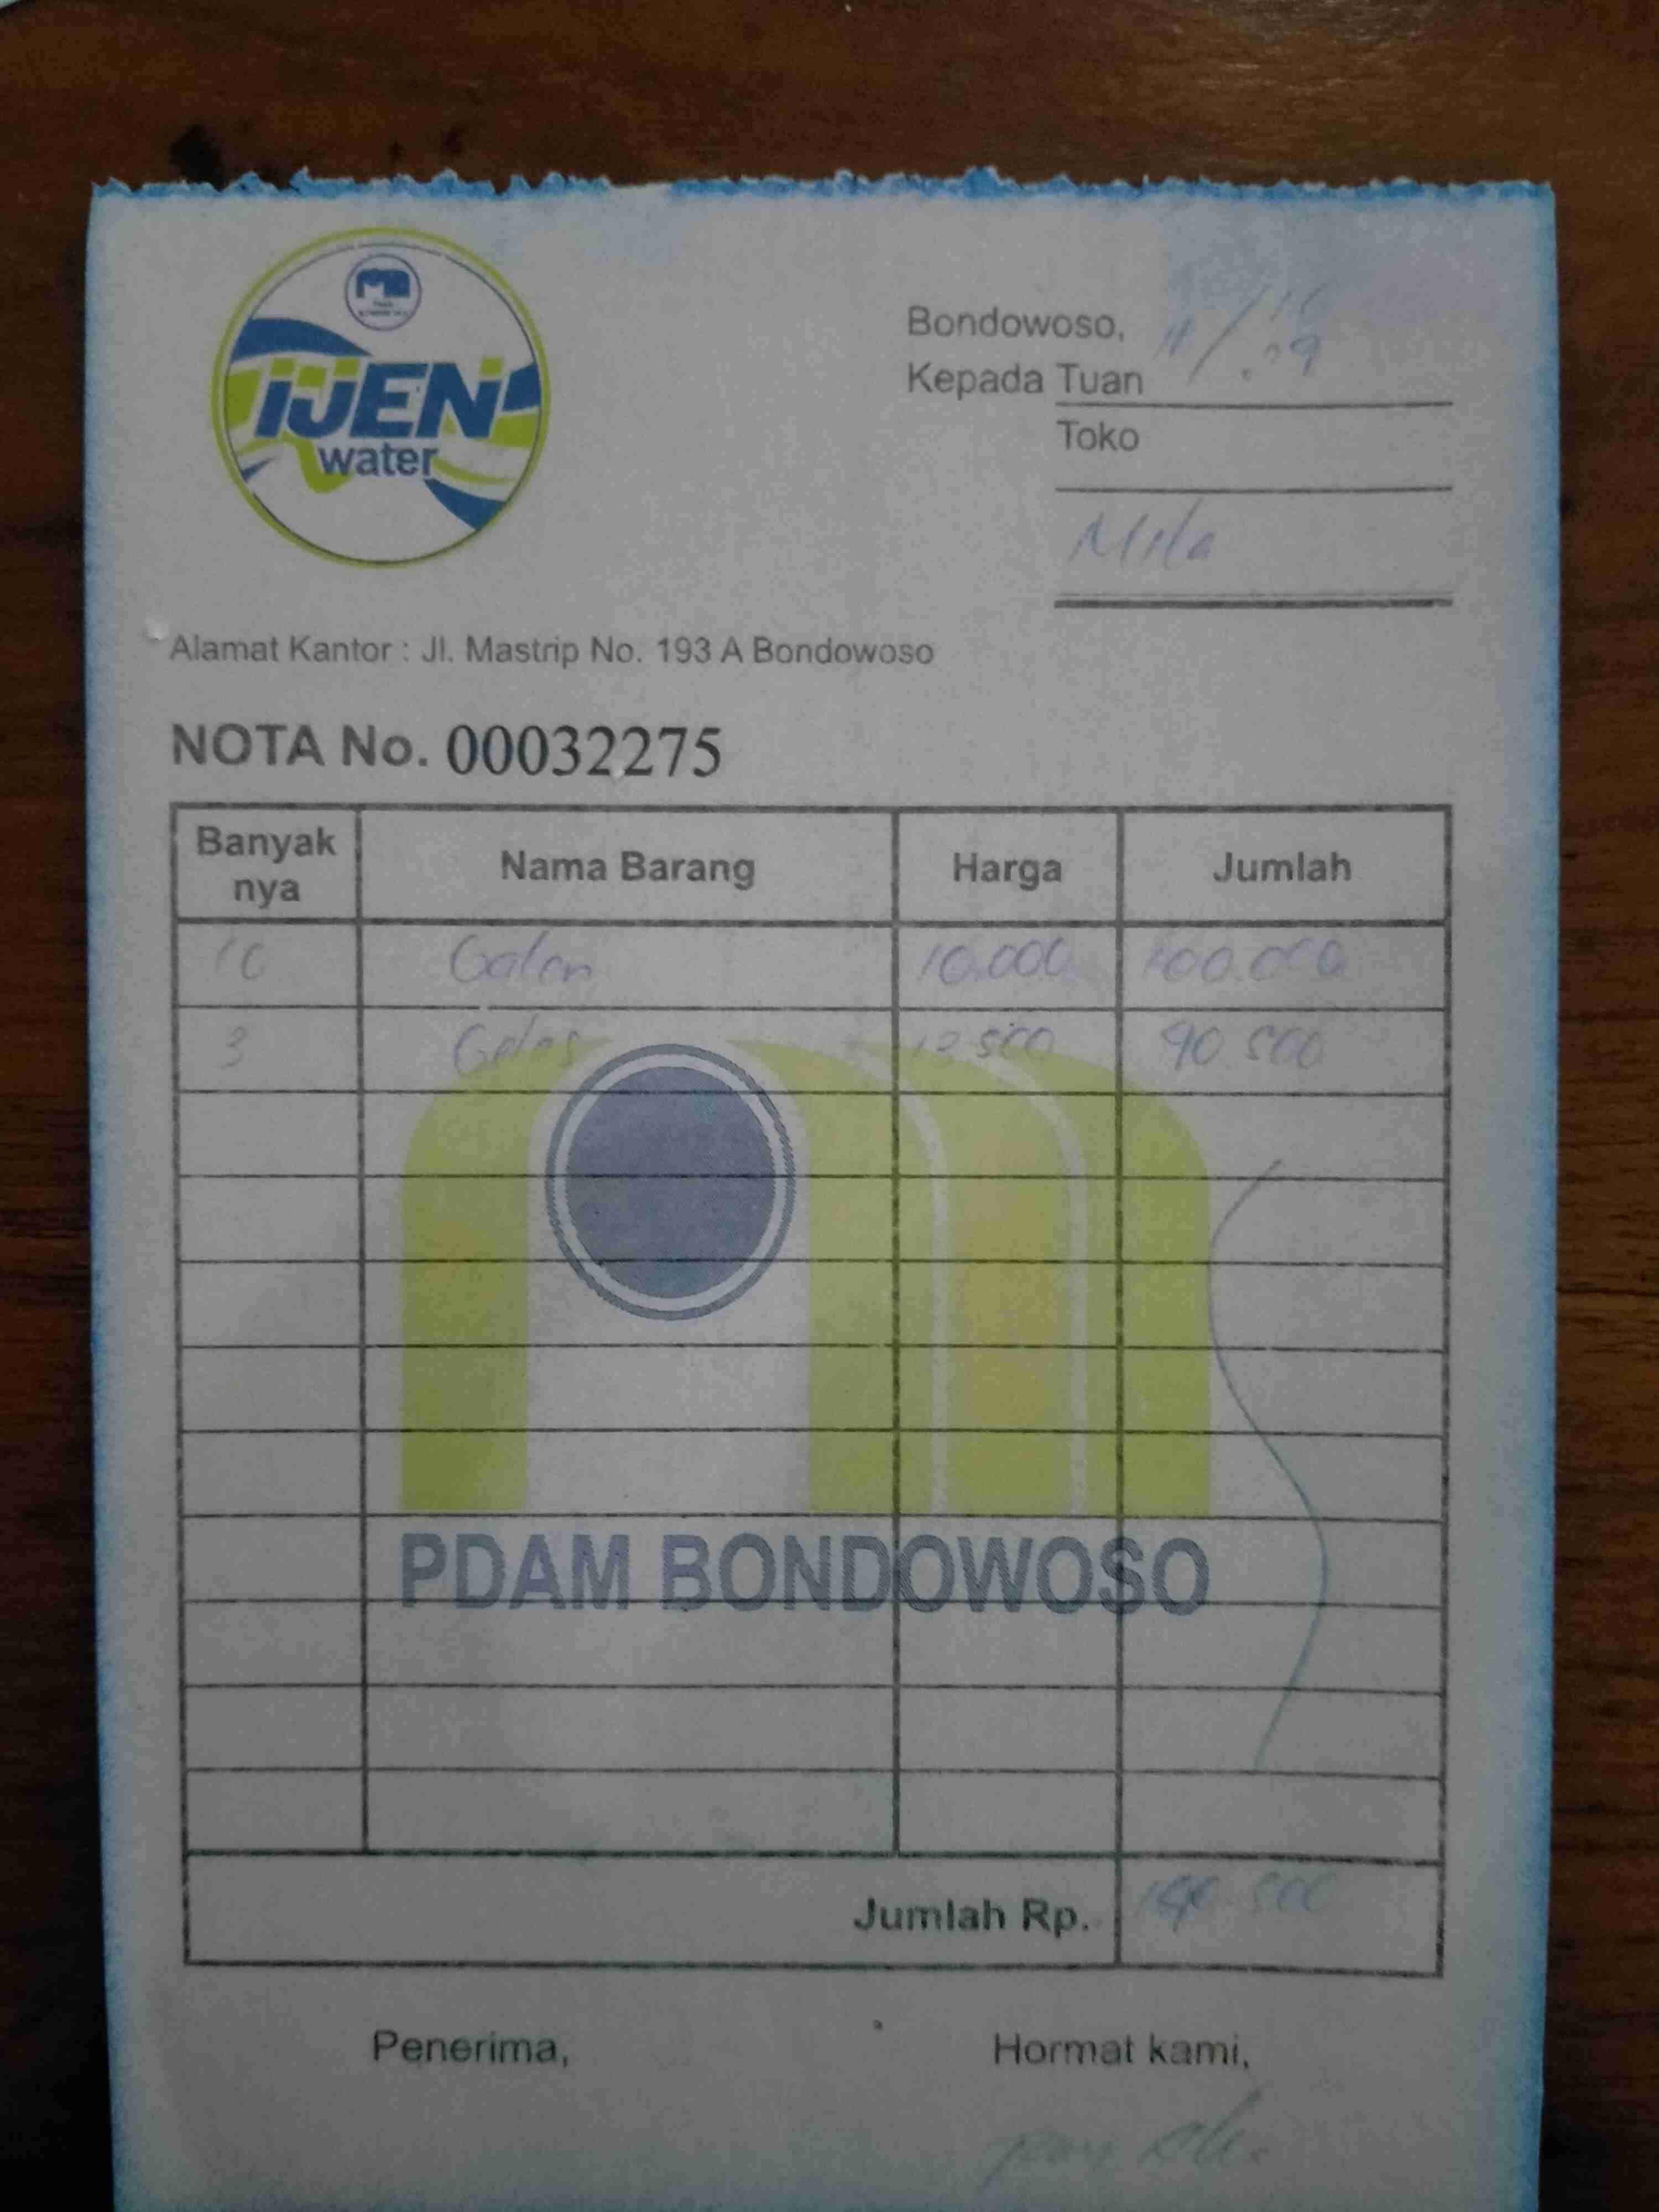 IJEN
water
Bondowoso,
Kepada Tuan
Toko
Mila
Alamat Kantor : Jl. Mastrip No. 193 A Bondowoso
NOTA No. 00032275
Banyak
nya
Nama Barang
Harga
Jumlah
10 Galon 10.000 100.000
3 Gelas 13.500 40.500
PDAM BONDOWOSO
Jumlah Rp. 140.500
Penerima,
Hormat kami,